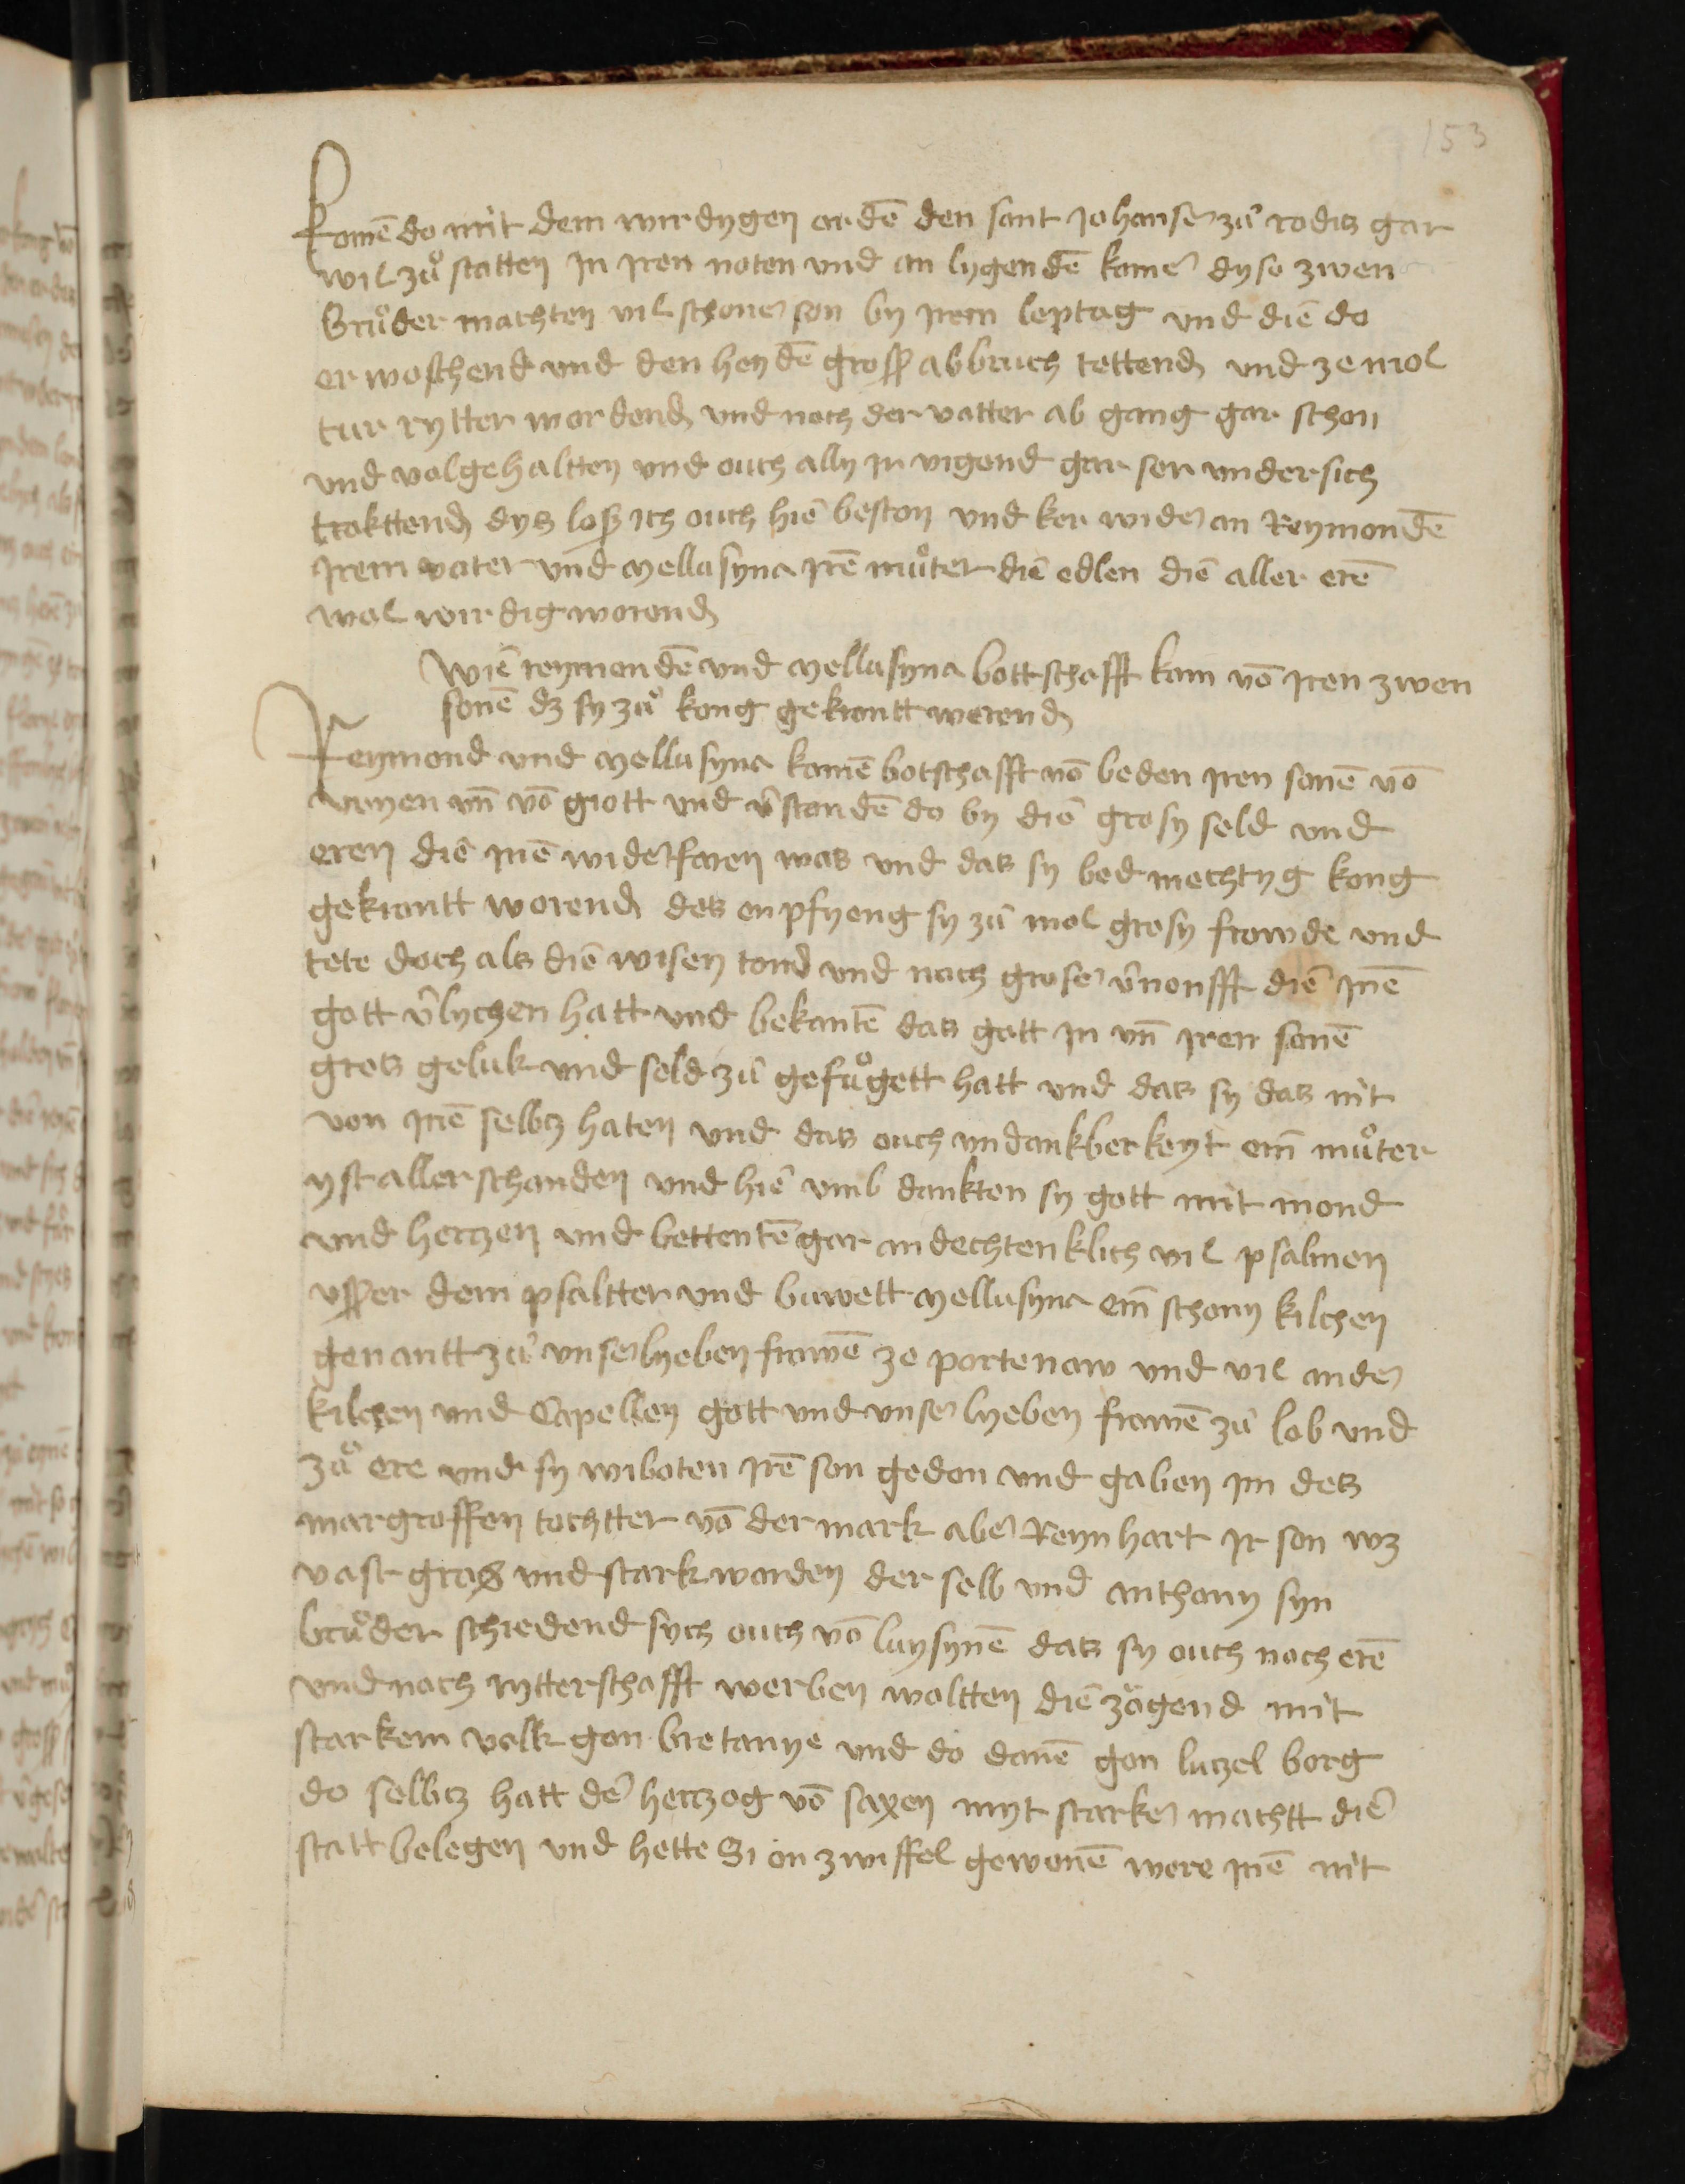 153
komē do mit dem wirdygen ordē den sant Johanser zů rodis gar
wil zů statten in iren noten und an lygendē kamer dyse zwen
brůder machten vil schoner son by irem leptag und die do
erwoschend und den heydē gross abbruch tettend und ze mol
tur rytter wordend und noch der vatter ab gang gar schon
und wolgehaltten und ouch ally ir vigend gar ser undersich
trokttend dys loss ich ouch hie beston und ker wider an Reymondē
Jrem vater und Mellusyna irē můter die edlen die aller erē
wol wirdig worend
Wie reymondē und Mellusyna bottschafft kam vō iren zwen
sonē dz sy zů kong gekrontt werend
Reymond und Mellusyna komē botschafft vō beden iren sonē vō
uryen vñ vō giott und v̄standē do by die grosy seld und
eren die inē widerfaren was und das sy bed mechtyg kong
gekrontt worend des enpfyeng sy zů mol grosy frowde und
tete doch als die wisen tond und noch groser v̄nonfft die inē
gott v̄lychen hatt und bekantē das gott in vñ iren sonē
gros geluk und seld zů gefůgett hatt und das sy das nit
von inē selbz haten und das ouch undankberkeyt em̄ můter
yst aller schanden und hie umb dankten sy gott mit mond
und herczen und bettentē gar andechtenklich vil psalmen
usser dem psaltter und buwett Mellusyna em̄ schony kilchen
genantt zů unser lyeben frowē ze portenaw und vil ander
kilchen und Capellen gott und unser lyeben frowē zů lob und
zů ere und sy wiboten irē son gedon und gaben im des
margroffen tochtter vō der mark aber Reynhart ir son wz
vast gros und stark worden der selb und anthony syn
brůder schiedend sych ouch vō luysynē das sy ouch noch erē
und noch rytterschafft werben woltten die zögend mit
starkem volk gon bretanye und do danē gon luczel borg
do selbz hatt der herczog vō saxen myt starker machtt die
statt belegen und hette Si on zwiffel gewonē were inē nit